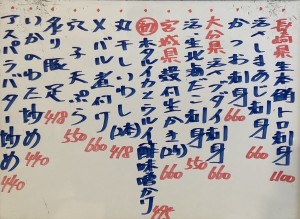 長崎県 本角トロ刺身 1100
活〆しまあじ刺身 660
かつお刺身 660
大分県 活〆ブダイ刺身 660
活生北海たこ刺身 550
宮城県 殻付生かき(2ヶ) 660
初 ホタルイカとウルイ酢味噌がけ 495
丸干しいわし(2本) 418
メバル煮付け 660
穴子天ぷら 550
炙り豚足 418
いかのわた炒め 440
アスパラバター炒め 440